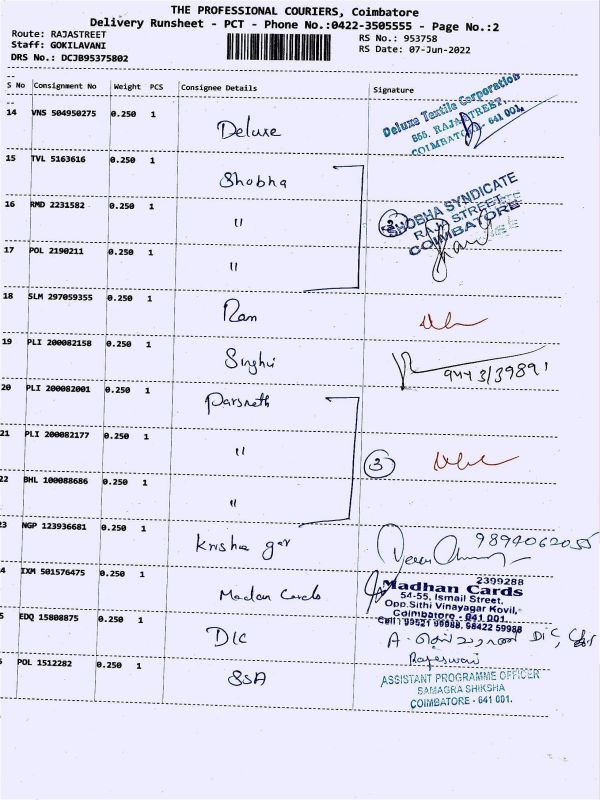 THE PROFESSIONAL COURIERS, Coimbatore
Delivery Runsheet - PCT - Phone No.:0422-3505555 - Page No.:2
Route: RAJASTREET
Staff: GOKILAVANI
DRS No.: DCJB95375802
RS No.: 953758
RS Date: 07-Jun-2022
S No Consignment No Weight PCS Consignee Details Signature
14 VNS 504950275 0.250 1 Deluxe
Deluxe Textile Corporation
655, RAJA STREET,
COIMBATORE - 641 001.
15 TVL 5163616 0.250 1 Shobha
16 RMD 2231582 0.250 1 "
SHOBHA SYNDICATE
RAJA STREET
COIMBATORE
17 POL 2190211 0.250 1 "
18 SLM 297059355 0.250 1 Ram
19 PLI 200082158 0.250 1 Singhvi
20 PLI 200082001 0.250 1 Parsnath
21 PLI 200082177 0.250 1 " 3
22 BHL 100088686 0.250 1 "
23 NGP 123936681 0.250 1 Krishna gar 9894062055
4 IXM 501576475 0.250 1 Madan Cards
2399288
Madhan Cards
54-55, Ismail Street,
Opp.Sithi Vinayagar Kovil,
Coimbatore - 641 001.
Cell : 99521 99988, 98422 59988
5 EDQ 15808875 0.250 1 DIC
DIC,
Rajeswari
POL 1512282 0.250 1 SSA
ASSISTANT PROGRAMME OFFICER
SAMAGRA SHIKSHA
COIMBATORE - 641 001.